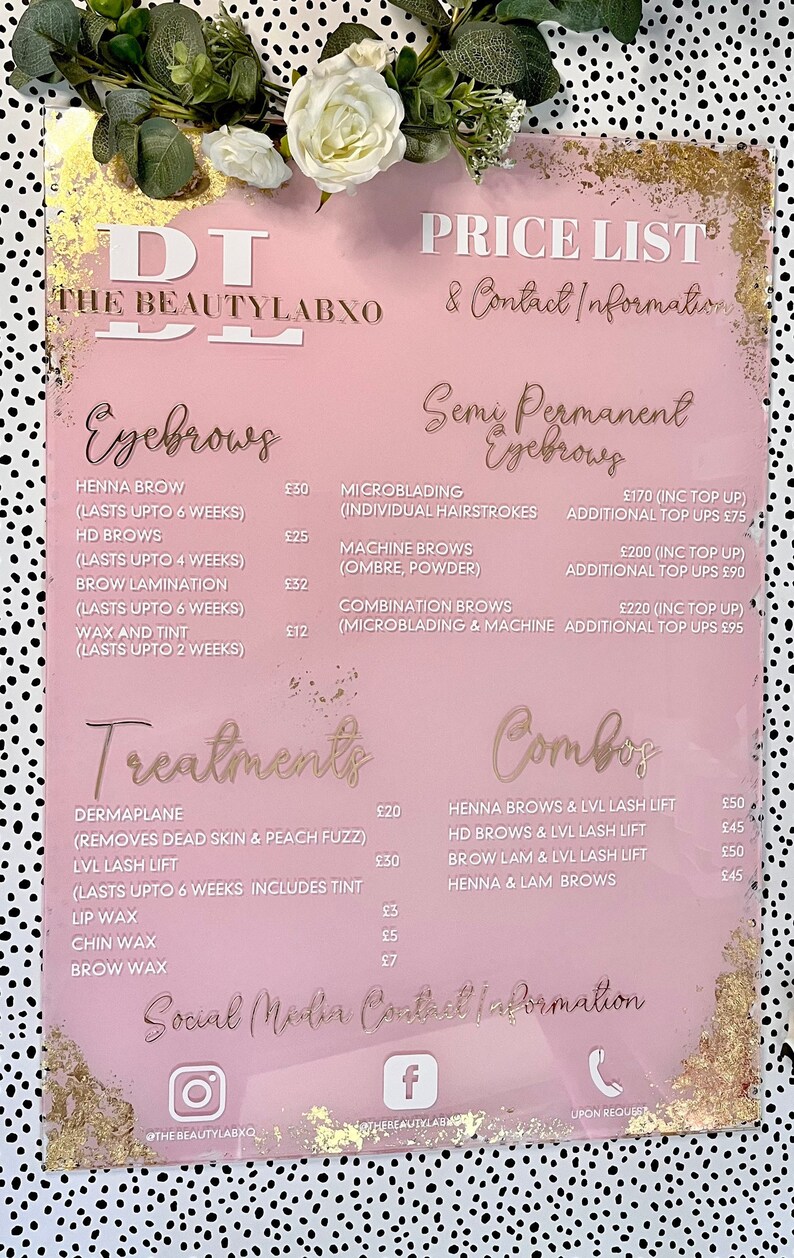 BL
THE BEAUTYLABXO
PRICE LIST
& Contact Information
Eyebrows
HENNA BROW £30
(LASTS UPTO 6 WEEKS)
HD BROWS £25
(LASTS UPTO 4 WEEKS)
BROW LAMINATION £32
(LASTS UPTO 6 WEEKS)
WAX AND TINT £12
(LASTS UPTO 2 WEEKS)
Semi Permanent
Eyebrows
MICROBLADING £170 (INC TOP UP)
(INDIVIDUAL HAIRSTROKES ADDITIONAL TOP UPS £75
MACHINE BROWS £200 (INC TOP UP)
(OMBRE, POWDER) ADDITIONAL TOP UPS £90
COMBINATION BROWS £220 (INC TOP UP)
(MICROBLADING & MACHINE ADDITIONAL TOP UPS £95
Treatments
DERMAPLANE £20
(REMOVES DEAD SKIN & PEACH FUZZ)
LVL LASH LIFT £30
(LASTS UPTO 6 WEEKS INCLUDES TINT
LIP WAX £3
CHIN WAX £5
BROW WAX £7
Combos
HENNA BROWS & LVL LASH LIFT £50
HD BROWS & LVL LASH LIFT £45
BROW LAM & LVL LASH LIFT £50
HENNA & LAM BROWS £45
Social Media Contact Information
@THEBEAUTYLABXO
@THEBEAUTYLABXO
UPON REQUEST